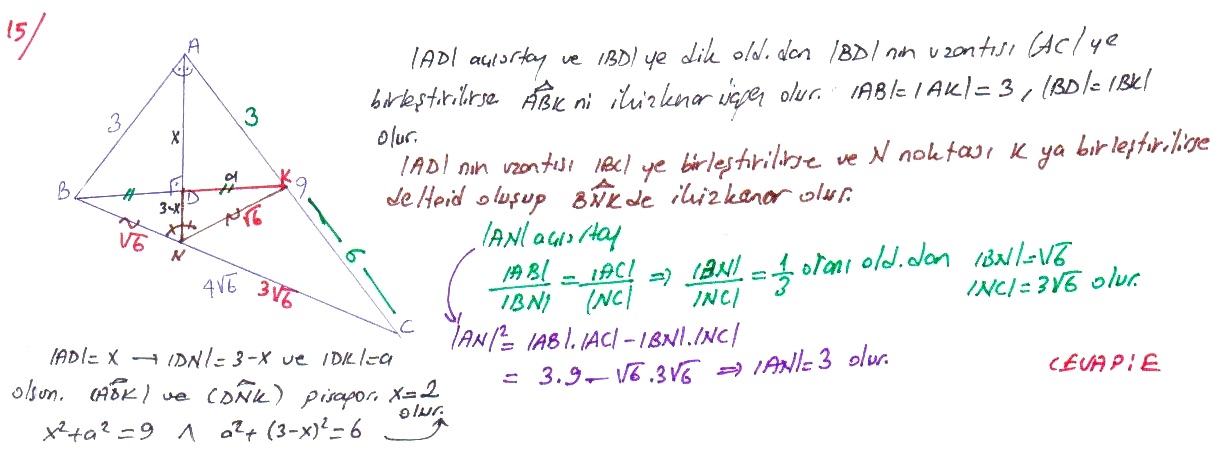 15/
A
3
3
x
B
D
a
K
9
3-x
√6
x
√6
N
6
4√6
3√6
C
|AD| açıortay ve |BD| ye dik old.dan |BD| nın uzantısı |AC| ye
birleştirilirse ABK ni ikizkenar üçgen olur. |AB|=|AK|=3, |BD|=|BK|
olur.
|AD| nın uzantısı |BC| ye birleştirilirse ve N noktası K ya birleştirilirse
deltoid oluşup BNK de ikizkenar olur.
|AN| açıortay
|AB|/|BN| = |AC|/|NC| ⇒ |BN|/|NC| = 1/3 oranı old.dan |BN|=√6
|NC|=3√6 olur.
|AN|² = |AB|.|AC| - |BN|.|NC|
= 3.9 - √6.3√6 ⇒ |AN|=3 olur.
CEVAP:E
|AD|=x → |DN|=3-x ve |DK|=a
olsun. (ADK) ve (DNK) pisagor. x=2
olur.
x²+a²=9 ∧ a²+(3-x)²=6